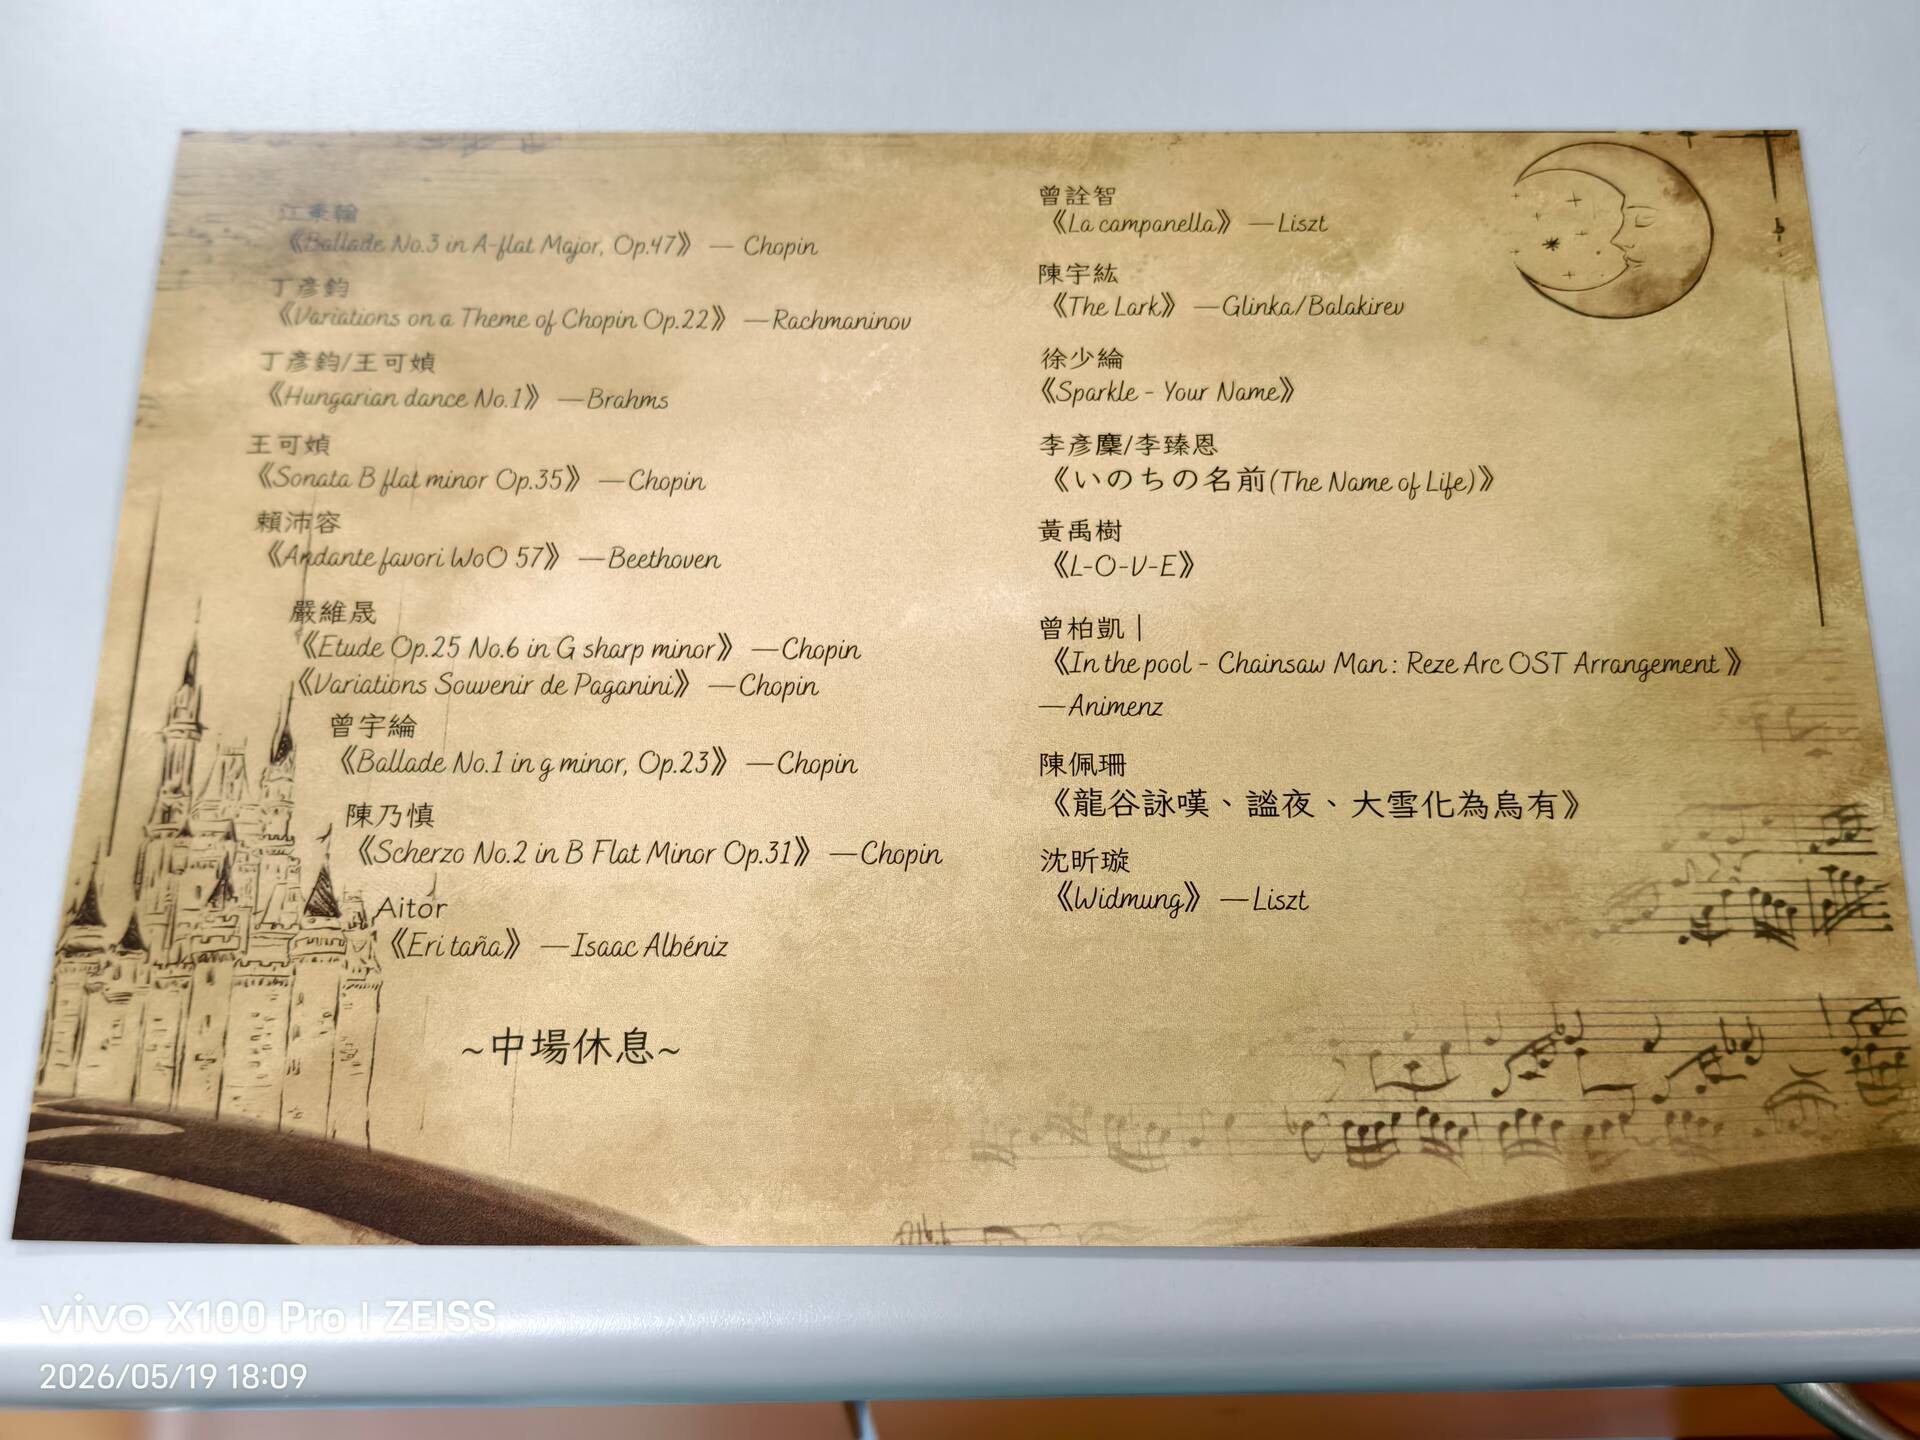 江秉翰
《Ballade No.3 in A-flat Major, Op.47》 — Chopin
丁彥鈞
《Variations on a Theme of Chopin Op.22》 —Rachmaninov
丁彥鈞/王可媜
《Hungarian dance No.1》 —Brahms
王可媜
《Sonata B flat minor Op.35》 —Chopin
賴沛容
《Andante favori WoO 57》 —Beethoven
嚴維晟
《Etude Op.25 No.6 in G sharp minor》 —Chopin
《Variations Souvenir de Paganini》 —Chopin
曾宇綸
《Ballade No.1 in g minor, Op.23》 —Chopin
陳乃慎
《Scherzo No.2 in B Flat Minor Op.31》 —Chopin
Aitor
《Eri taña》 —Isaac Albéniz
~中場休息~
曾詮智
《La campanella》 —Liszt
陳宇紘
《The Lark》 —Glinka/Balakirev
徐少綸
《Sparkle - Your Name》
李彥麇/李臻恩
《いのちの名前(The Name of Life)》
黃禹樹
《L-O-V-E》
曾柏凱 |
《In the pool - Chainsaw Man : Reze Arc OST Arrangement 》
—Animenz
陳佩珊
《龍谷詠嘆、謐夜、大雪化為烏有》
沈昕璇
《Widmung》 —Liszt
vivo X100 Pro | ZEISS
2026/05/19 18:09